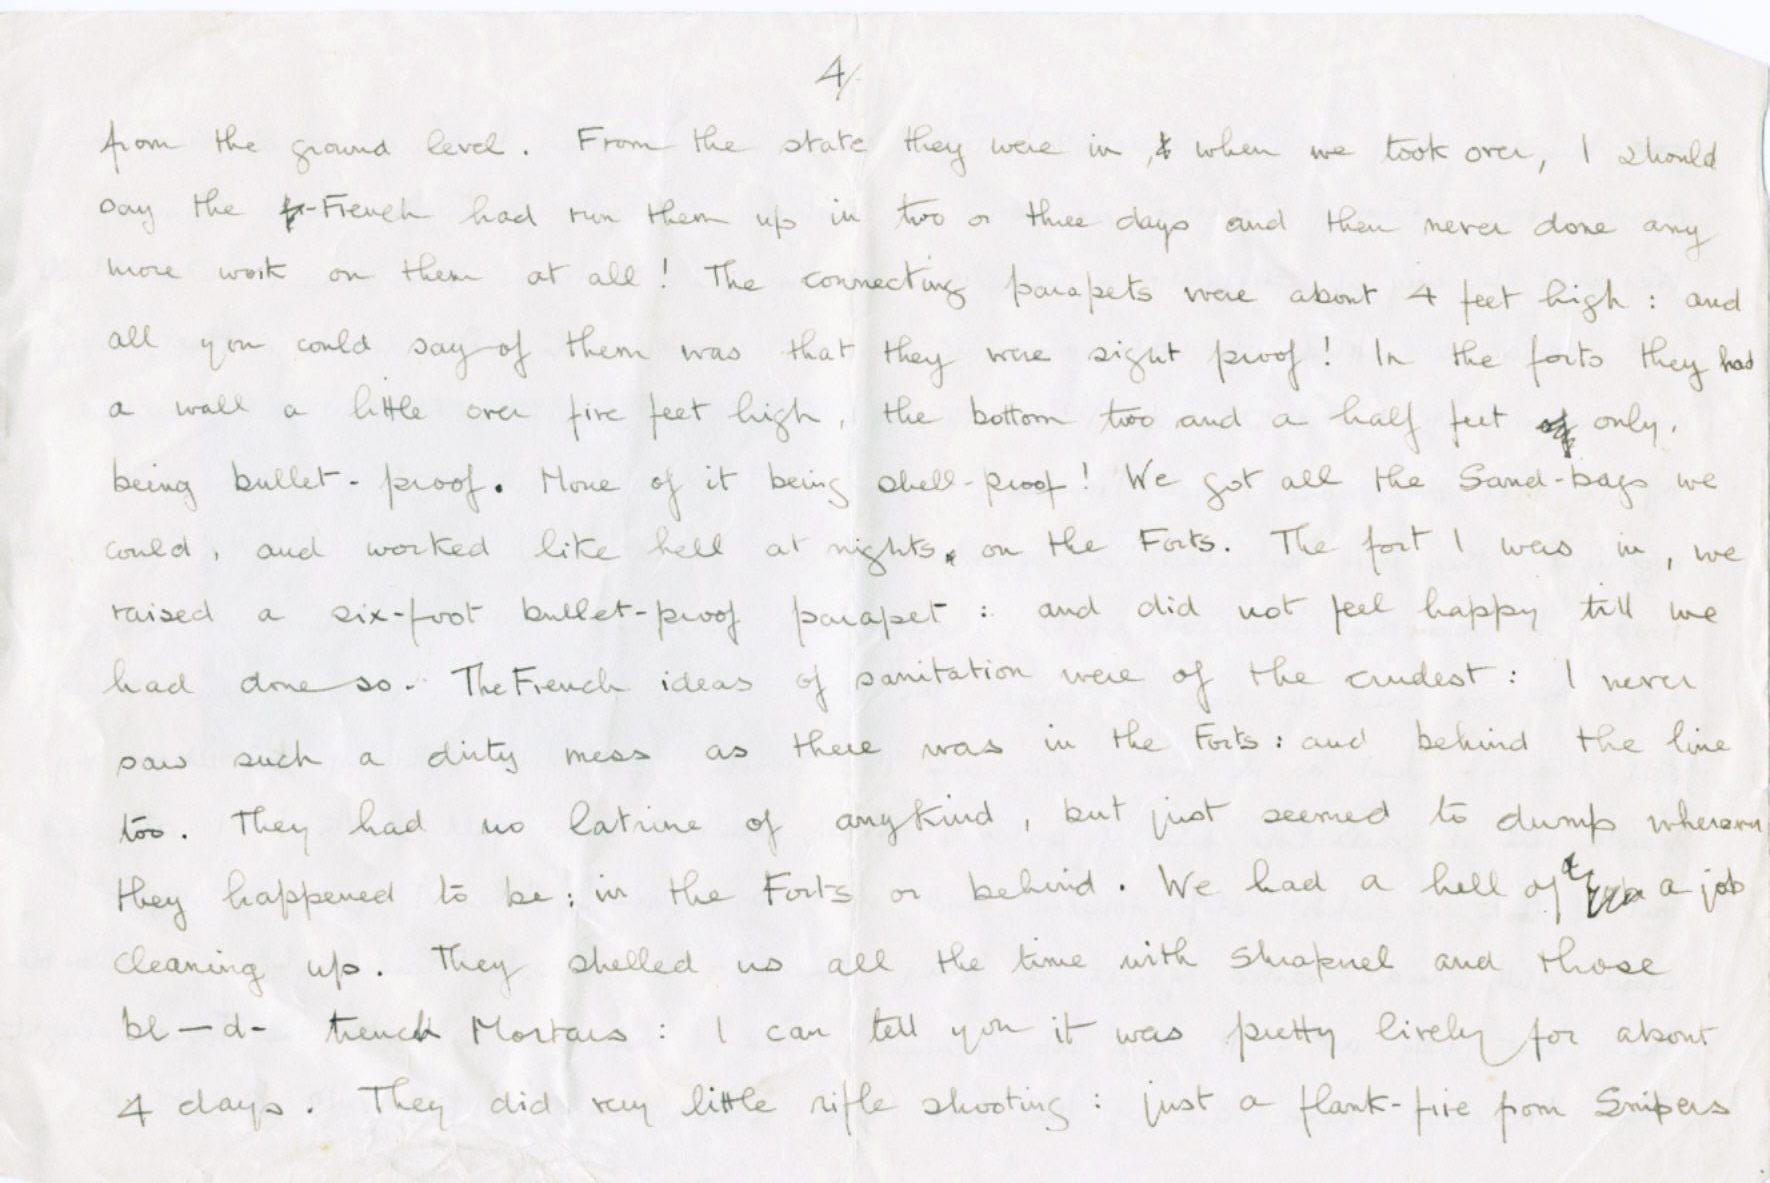 4/
from the ground level. From the state they were in, when we took over, I should
say the French had run them up in two or three days and then never done any
more work on them at all! The connecting parapets were about 4 feet high : and
all you could say of them was that they were sight proof! In the forts they had
a wall a little over five feet high, the bottom two and a half feet only,
being bullet-proof. None of it being shell-proof! We got all the Sand-bags we
could, and worked like hell at nights on the Forts. The fort I was in, we
raised a six-foot bullet-proof parapet : and did not feel happy till we
had done so. The French ideas of sanitation were of the crudest : I never
saw such a dirty mess as there was in the Forts : and behind the line
too. They had no latrine of anykind, but just seemed to dump wherever
they happened to be : in the Forts or behind. We had a hell of a job
cleaning up. They shelled us all the time with Shrapnel and those
bl—d- trench Mortars : I can tell you it was pretty lively for about
4 days. They did very little rifle shooting : just a flank-fire from Snipers